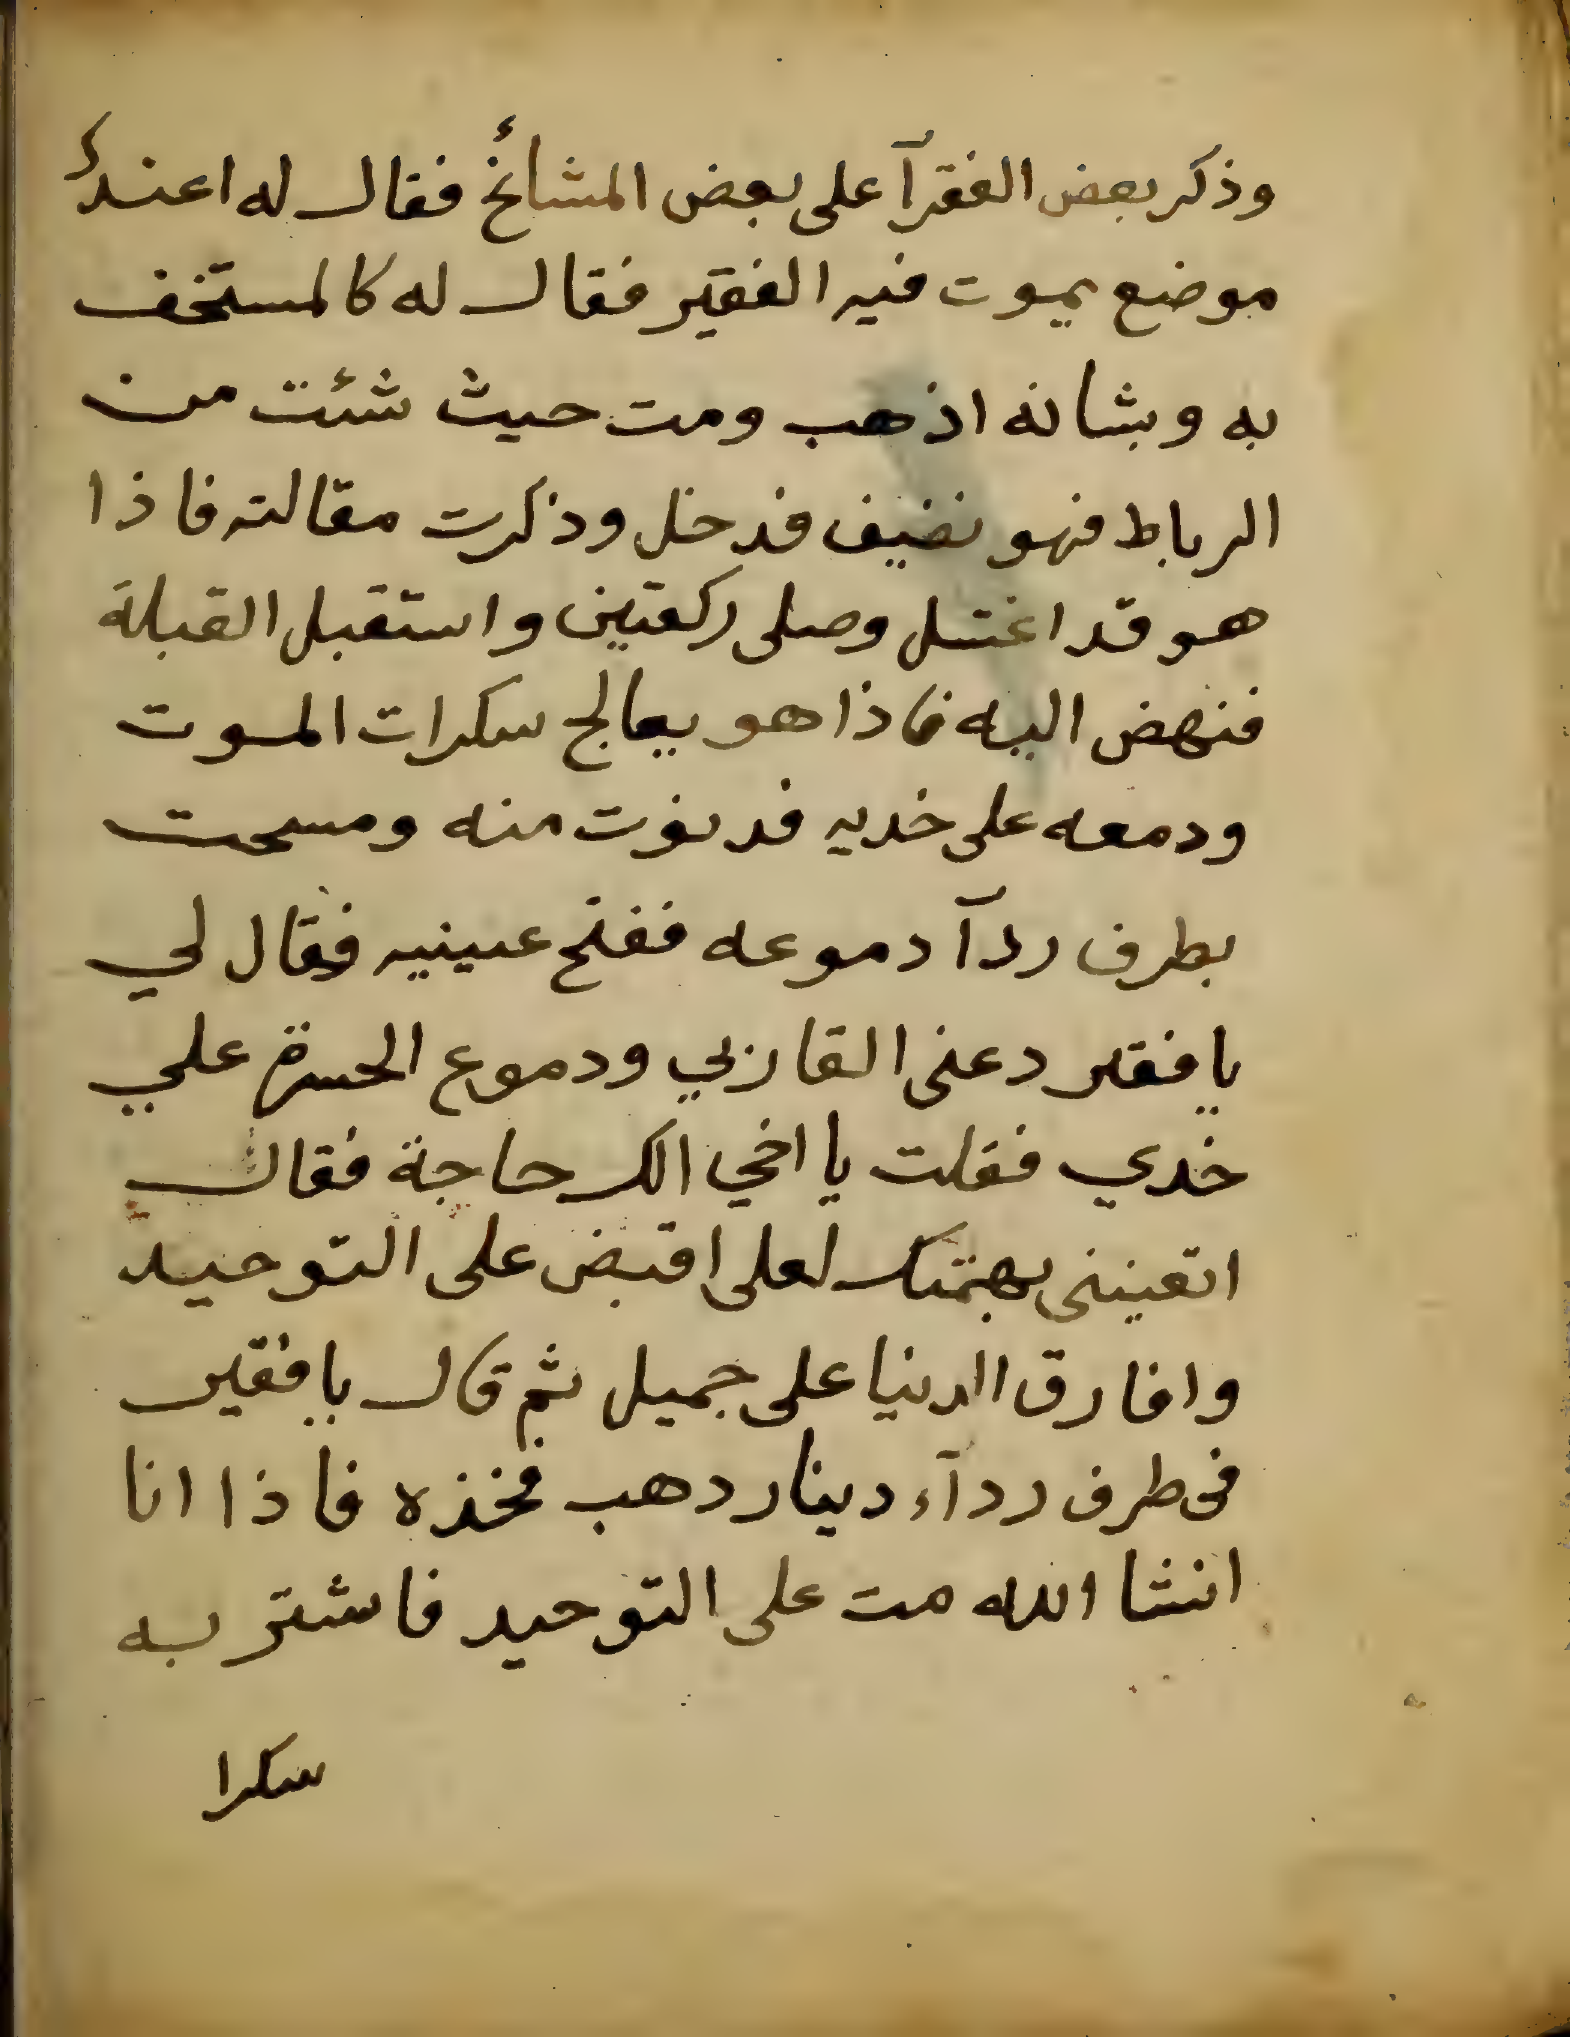 وذكر بعض الفقرآ على بعض المشائخ فقال له اعندك
موضع يموت فيه الفقير فقال له كالمستخف
به وبشانه اذهب ومت حيث شئت من
الرباط فهو نضيف فدخل وذكرت مقالته فاذا
هو قد اغتسل وصلى ركعتين واستقبل القبلة
فنهض اليه فاذا هو يعالج سكرات الموت
ودمعه على خديه فدنوت منه ومسحت
بطرف ردآ دموعه ففتح عينيه فقال لي
يا فقير دعنى القا ربي ودموع الحسرة علي
خدي فقلت يا اخي الك حاجة فقال
اتعيننى بهمتك لعلى اقبض على التوحيد
وافارق الدنيا على جميل ثم قال يا فقير
فى طرف ردآء دينار دهب فخذه فاذا انا
انشا الله مت على التوحيد فاشتر به
سكرا